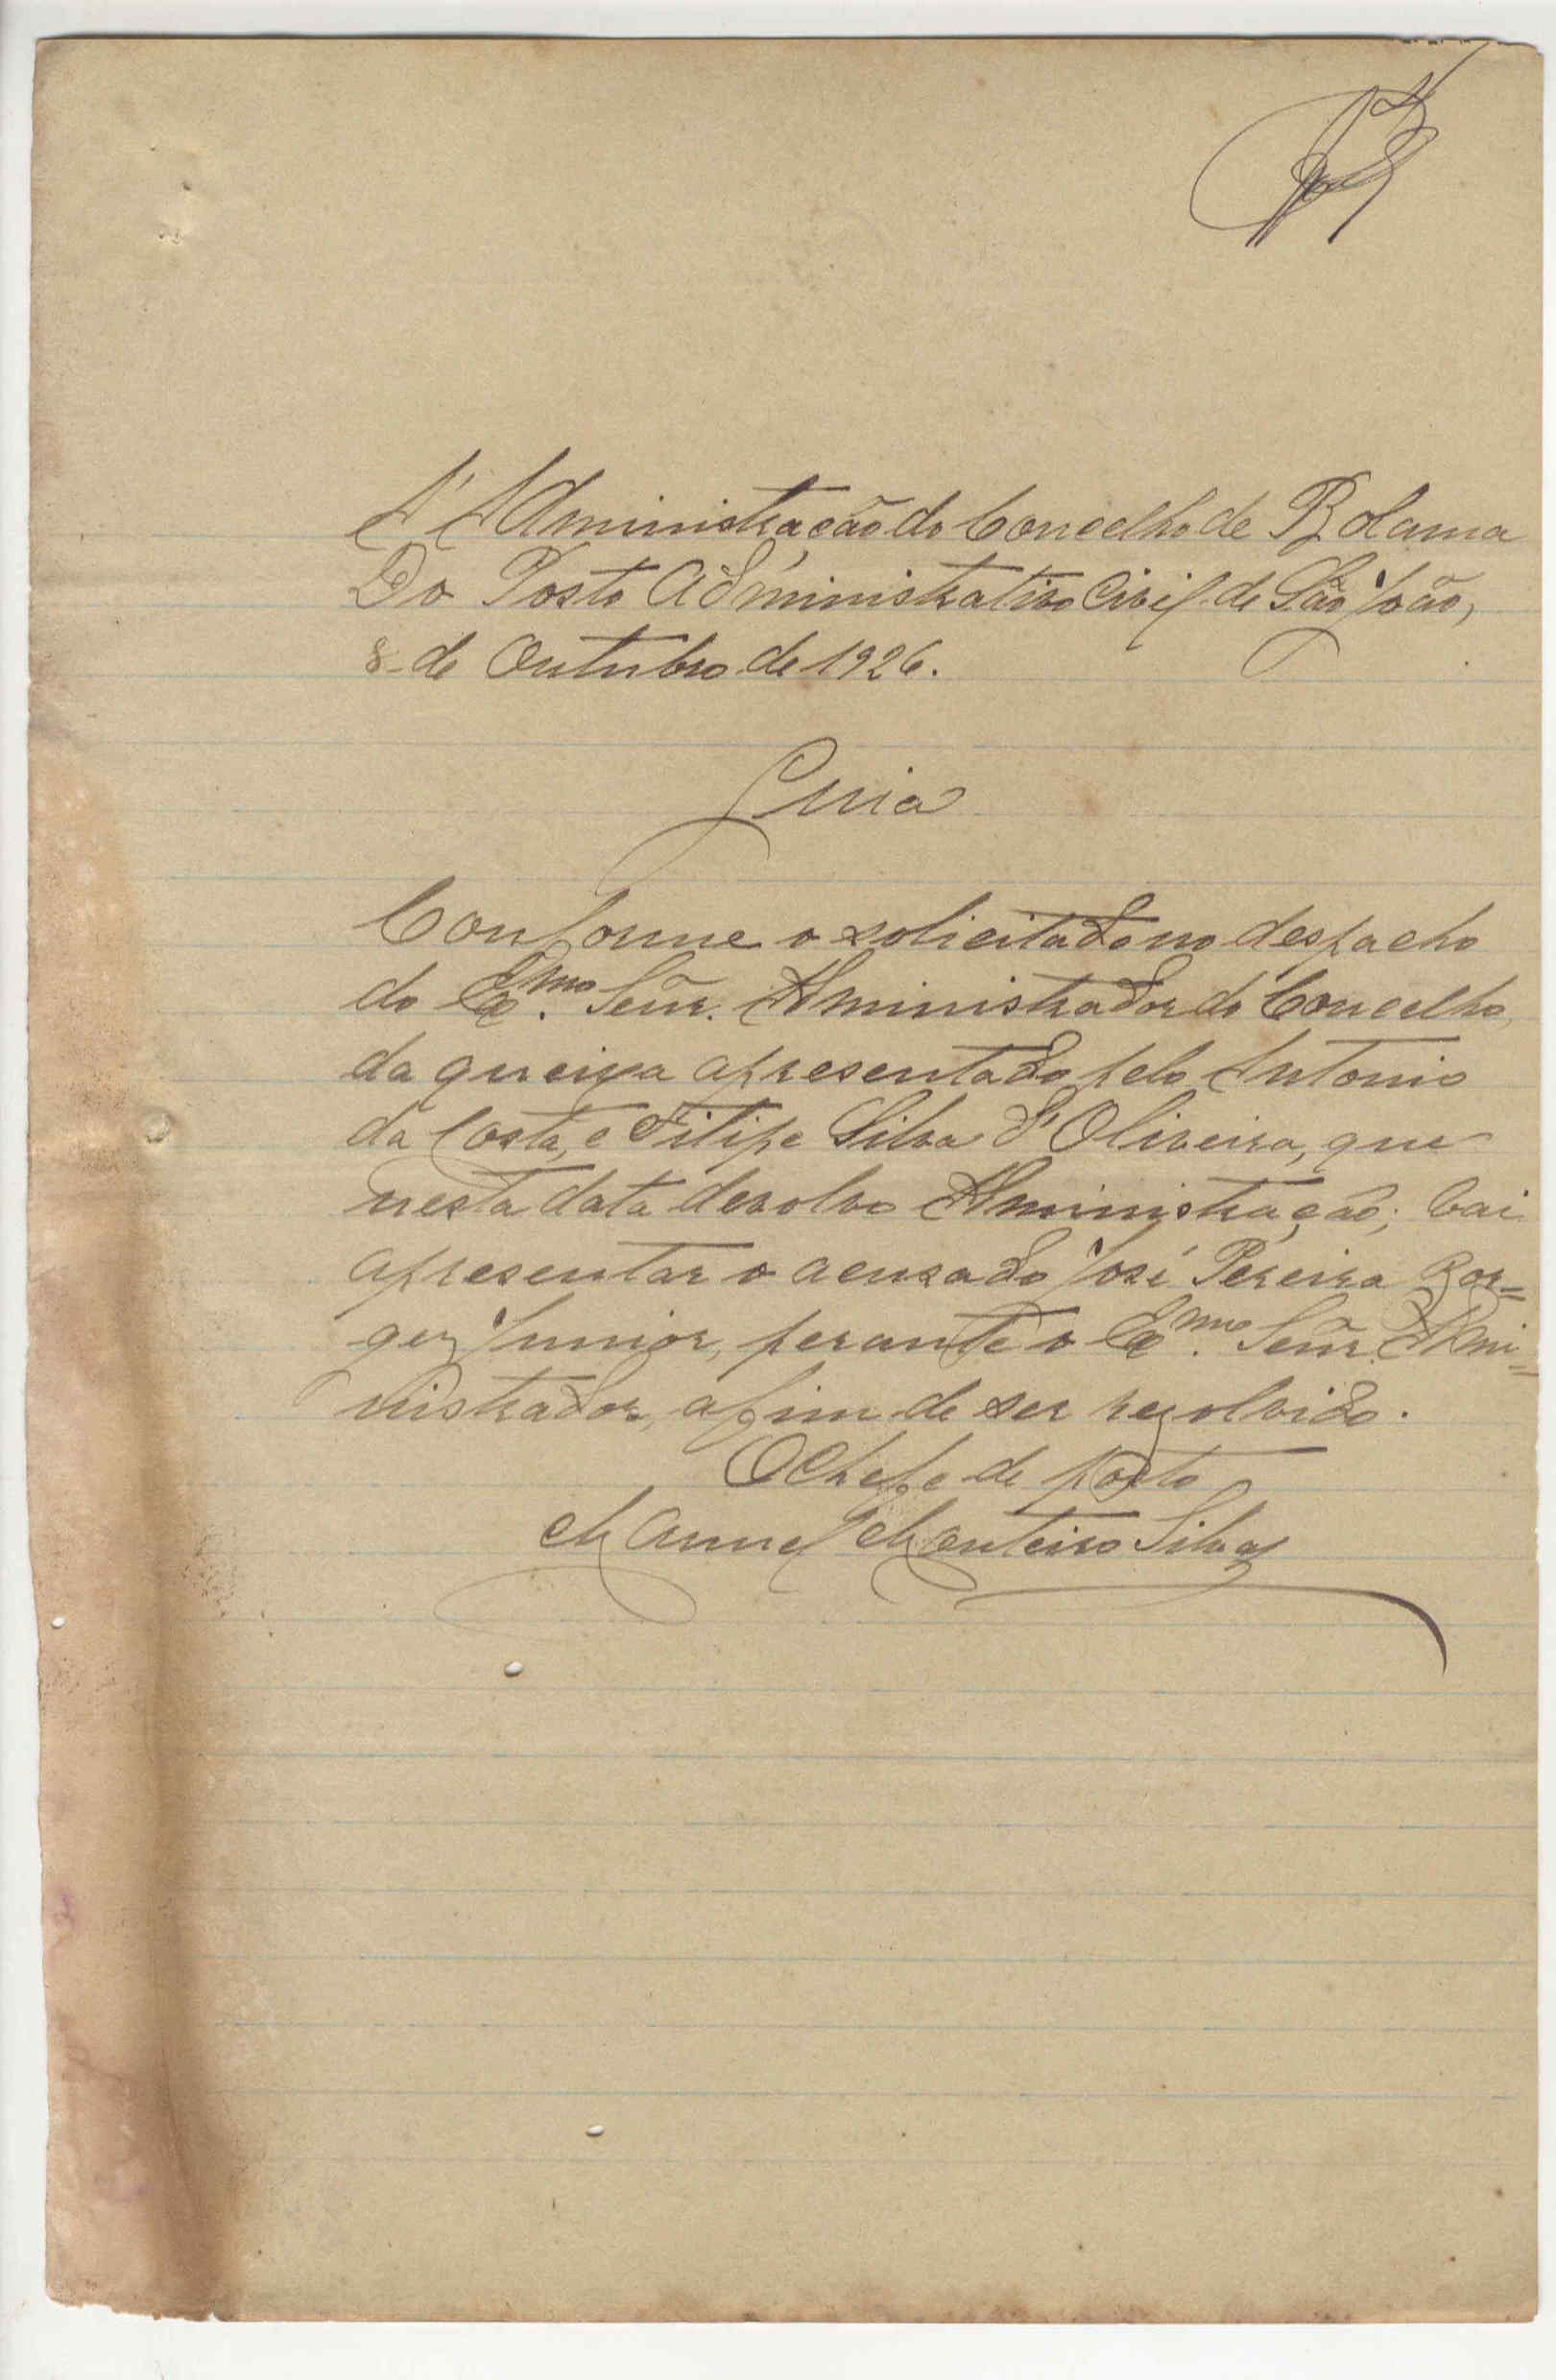 A' Administração do Concelho de Bolama
Do Posto Administrativo Civil de São João,
8 de Outubro de 1926.
Guia
Conforme o solicitado no despacho
do Exmo. Señr. Aministrador do Concelho
da queixa apresentado pelo Antonio
da Costa, e Filipe Silva d'Oliveira, que
nesta data devolvo Aministração; vai
apresentar o acusado José Pereira Bor=
gez Junior, perante o Exmo. Señr. Ami=
nistrador, afim de ser rezolvido.
O Chefe de posto
Manuel Monteiro Silva